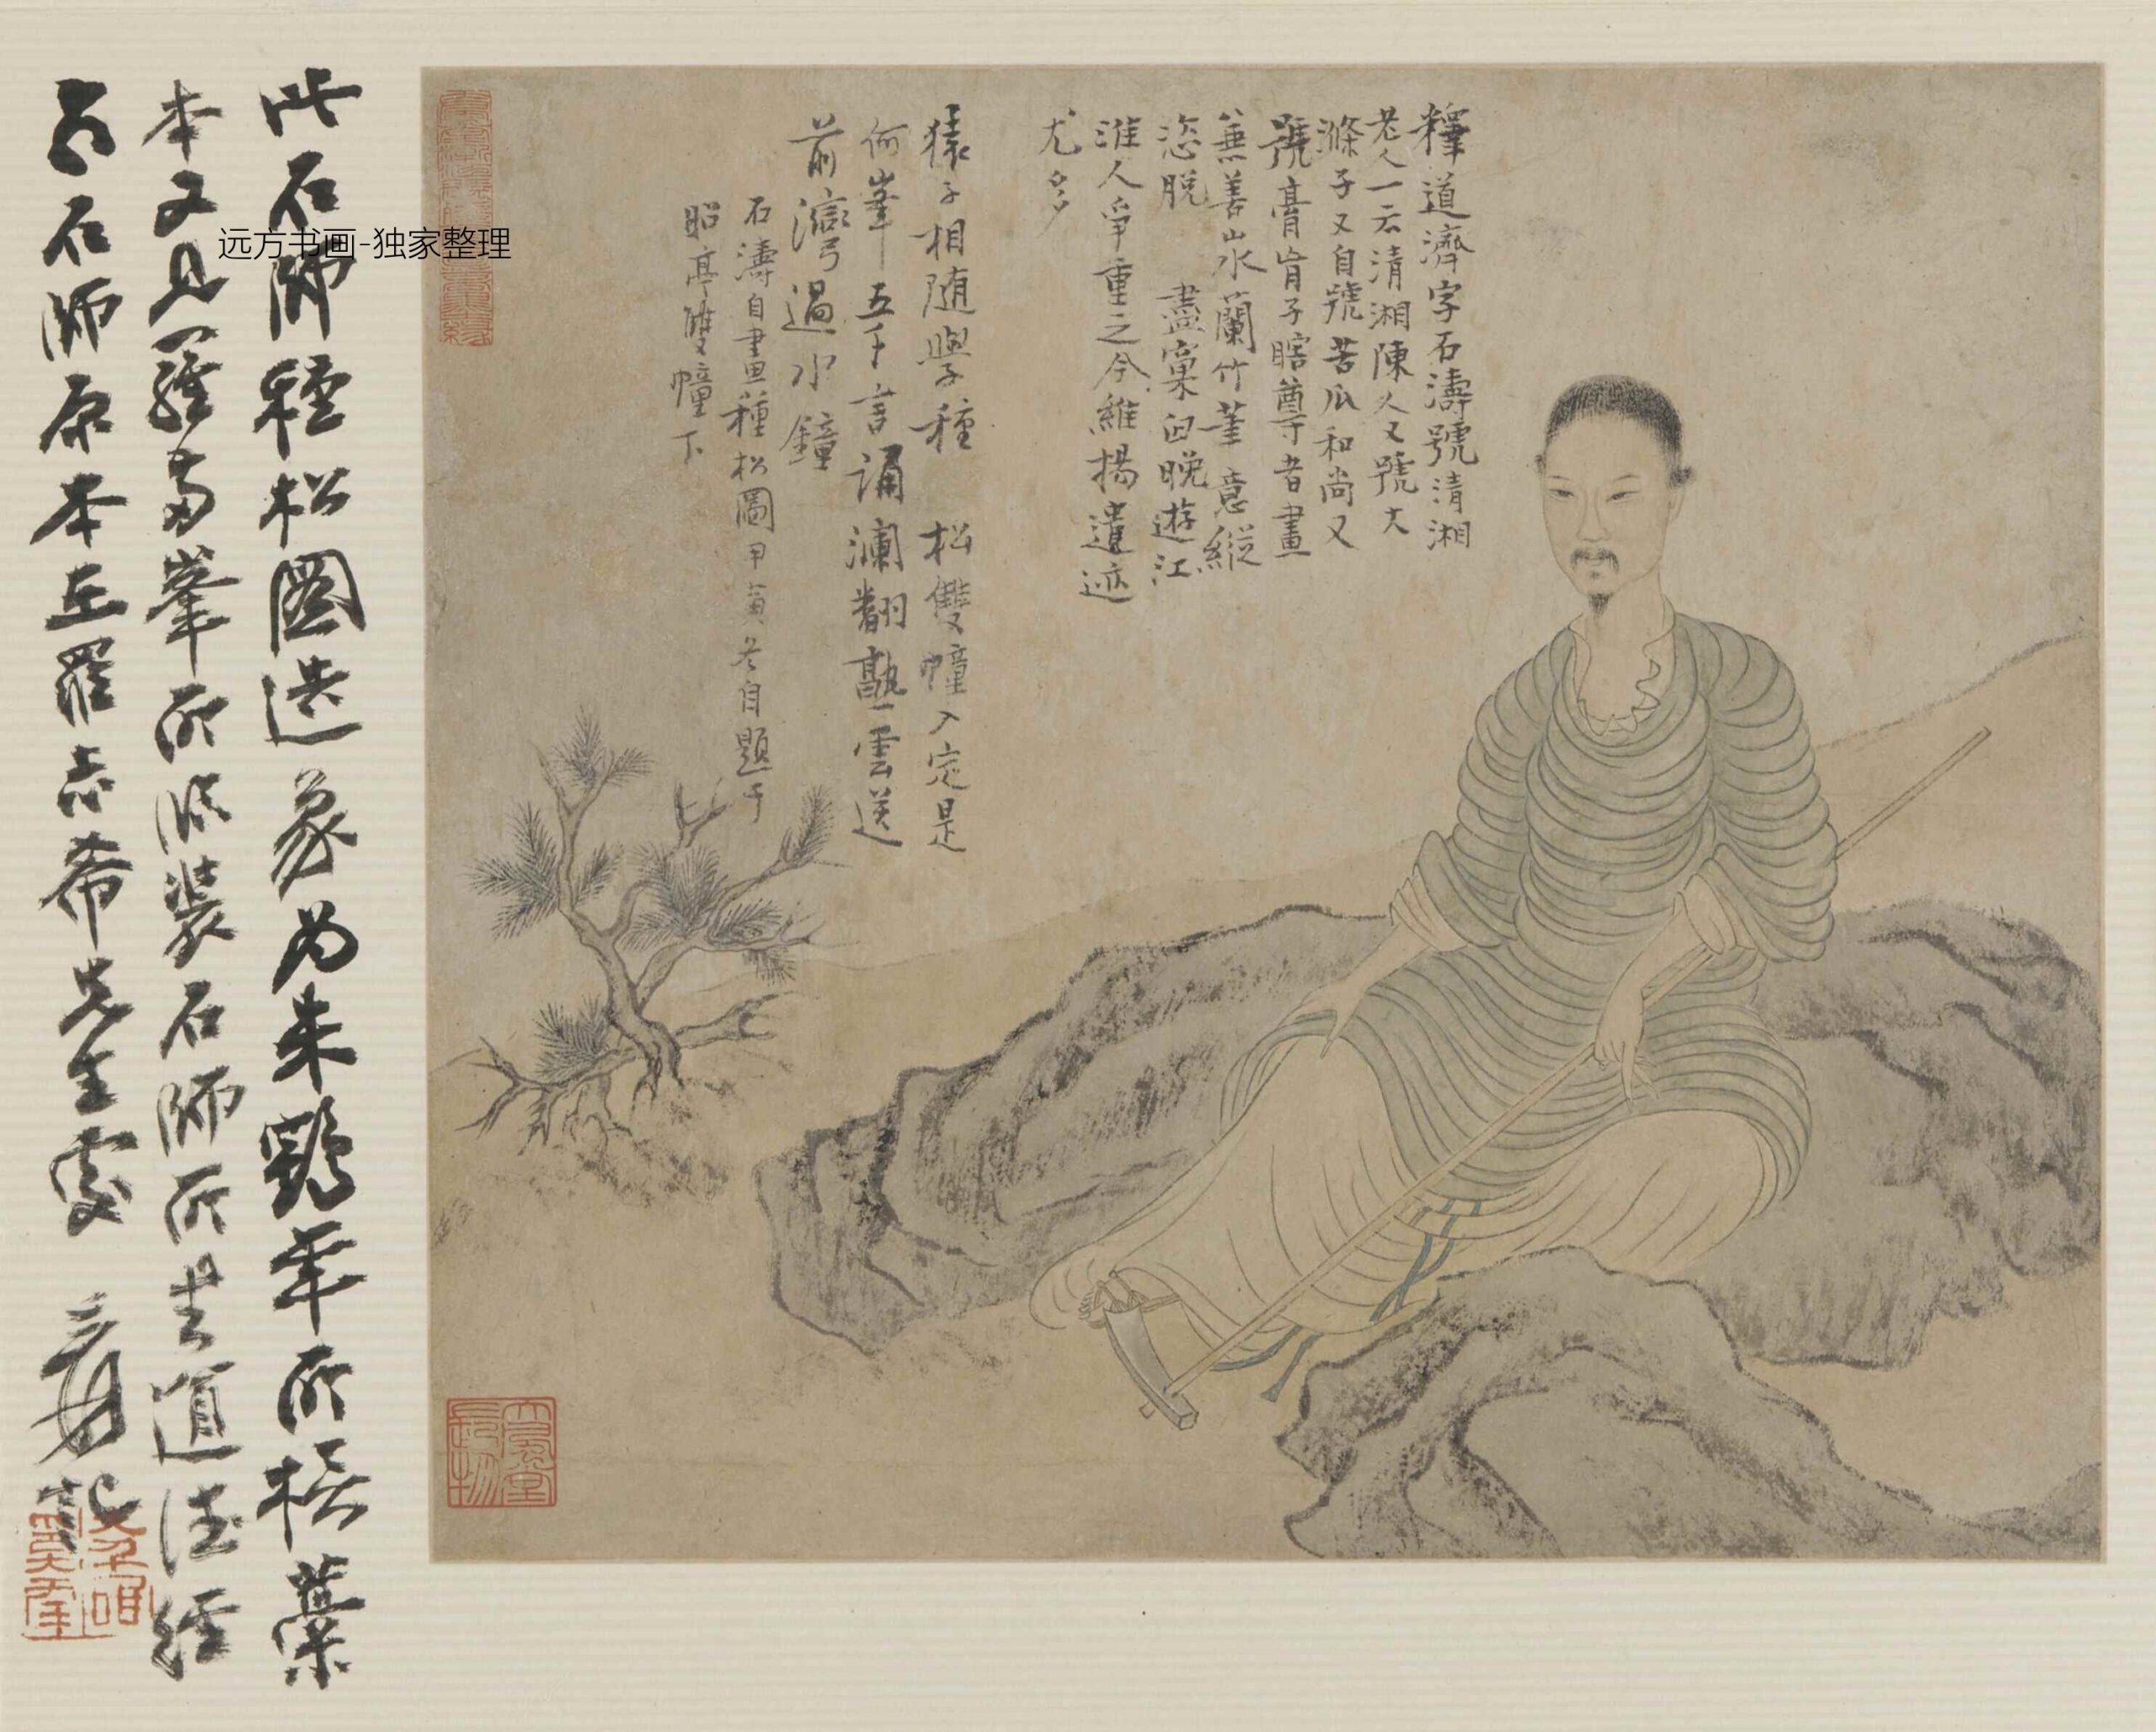 釋道濟字石濤號清湘
老人一云清湘陳人又號大
滌子又自號苦瓜和尚又
號膏肓子瞎尊者畫
兼善山水蘭竹筆意縱
恣脫盡窠臼晚遊江
淮人爭重之今維揚遺迹
尤多
猿子相隨學種松雙幢入定是
何峯五千言誦瀾翻熟雲送
前灣過水鐘
石濤自畫種松圖甲寅冬自題于
昭亭雙幢下
此石師種松圖造象為朱鶴年所橅藁
本又見羅兩峯所臨裝石師所書道德經
石師原本在羅志希先生處 爰
大風堂
長物
远方书画-独家整理